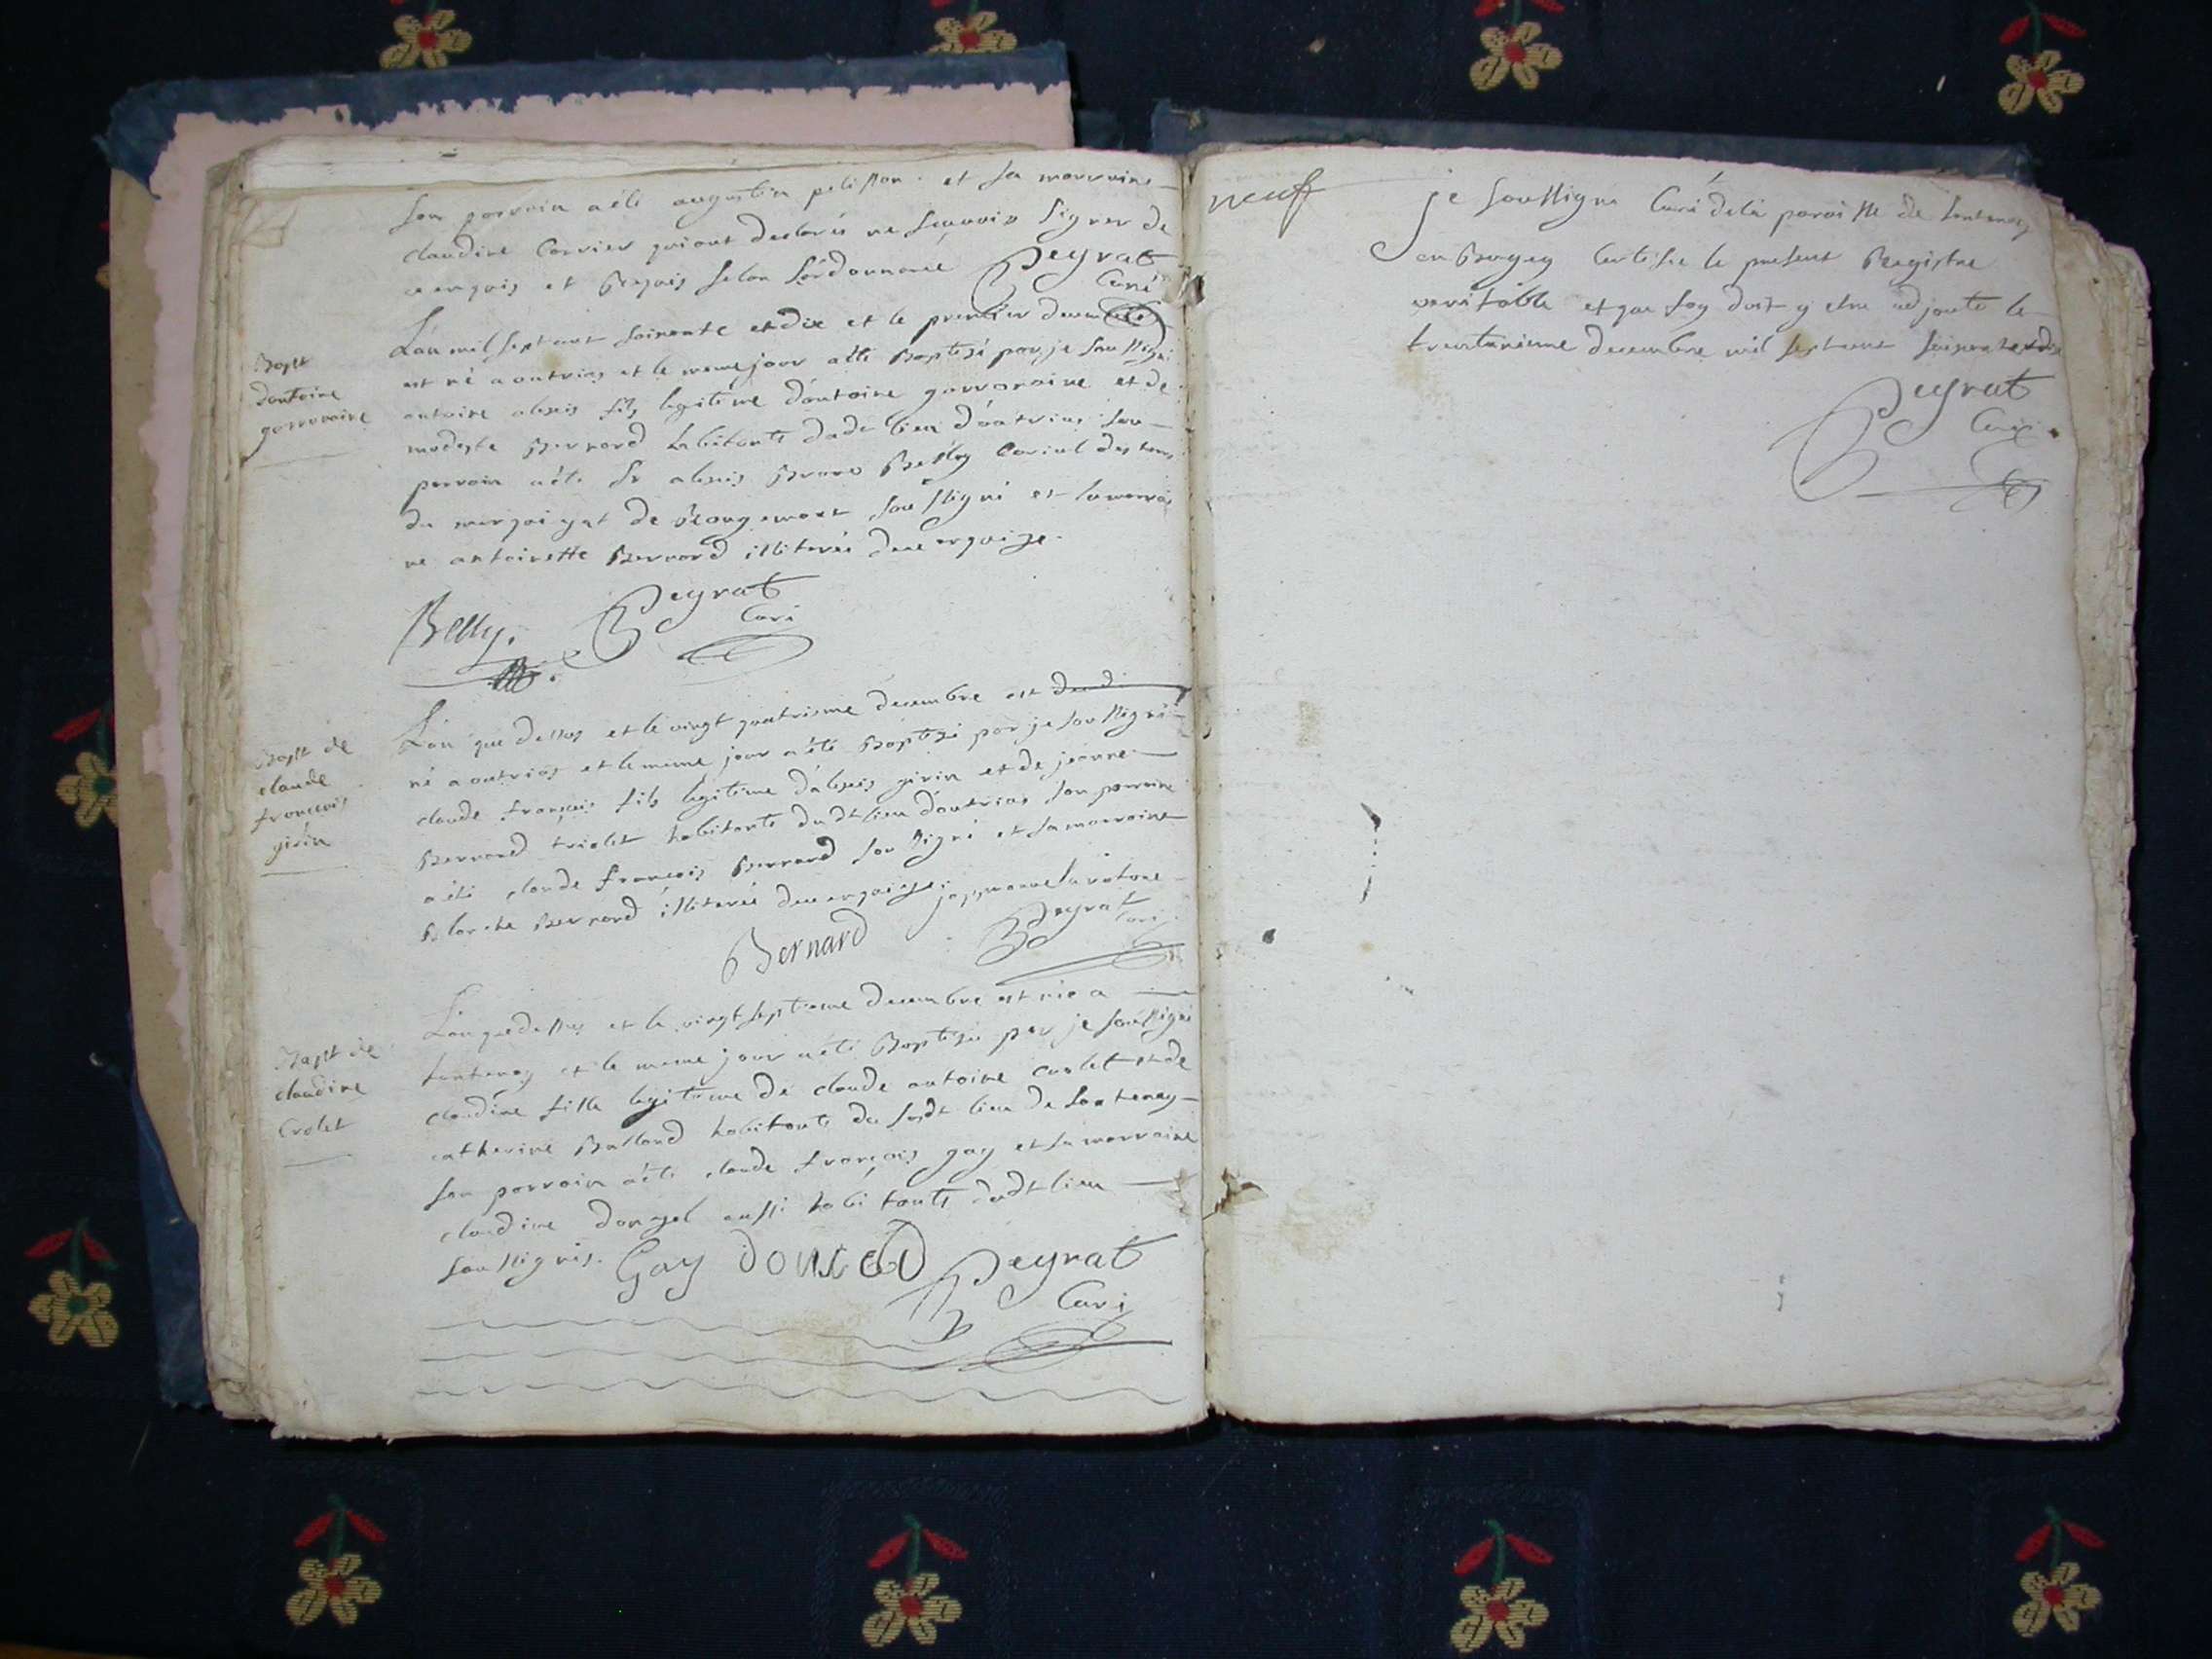 son parrain a été augustin pelisson. et sa marraine
claudine Carrier qui ont declarés ne scavoir signer de
ce enquis et Requis selon l'ordonnance Peyrat
Curé
Bapt
d'antoine
garavaine
L'an mil sept cent soixante et dix et le premier decembre
est né a outriaz et le meme jour a été Baptisé par je soussigné
antoine alexis fils legitime d'antoine garavaine et de
modeste Bernard habitants dudt lieu d'outriaz son
parrain a été Sr alexis Belly
du de Rougemont soussigné et sa marrai
ne antoinette Bernard illiterée de ce enquise.
Belly. Peyrat
Curé
Bapt de
claude
françois
girin
L'an que dessus et le vingt quatrieme decembre est
né a outriaz et le meme jour a été Baptisé par je soussigné
claude françois fils legitime d'alexis girin et de jeanne
Bernard triolet habitants dudt lieu d'outriaz son parrain
a été claude françois Bernard soussigné et sa marraine
Bernard illiterée de ce enquise; j'approuve la rature
Bernard Peyrat
Curé
Bapt de
claudine
Crolet
L'an que dessus et le vingt septieme decembre est née a
lantenay et le meme jour a été Baptisée par je soussigné
claudine fille legitime de claude antoine et de
catherine Balland habitants du susdt lieu de lantenay
son parrain a été claude françois gay et sa marraine
claudine aussi habitants dudt lieu
soussignés. Gay Peyrat
Curé
neuf
je soussigné Curé de la paroisse de lantenay
en Bugey Certifie le present Registre
veritable et que foy doit y etre adjouté le
trente decembre mil sept cent soixante et dix
Peyrat
Curé